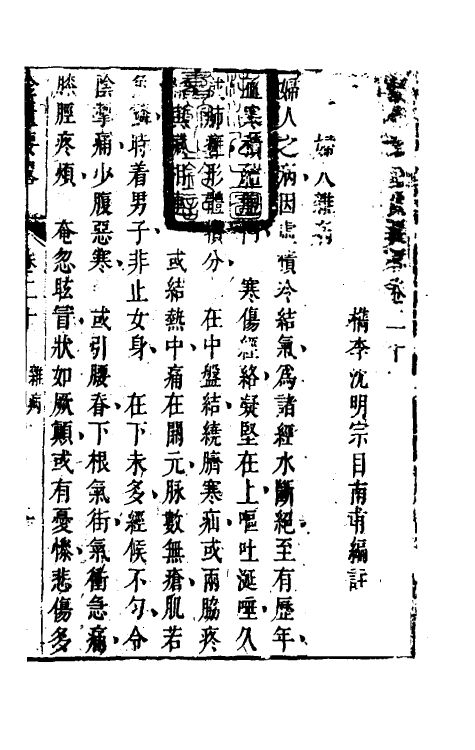 卷二十
婦人雜病
檇李沈明宗目南甫編註
婦人之病因虛積冷結氣為諸經水斷絕至有歷年
血寒積結胞門　寒傷經絡凝堅在上嘔吐涎唾久
成肺癰形體損分　在中盤結繞臍寒疝或兩脇疼
痛與藏相連　或結熱中痛在關元脉數無瘡肌若
魚鱗時着男子非止女身　在下未多經候不勻令
陰掣痛少腹惡寒　或引腰脊下根氣街氣衝急痛
膝脛疼煩　奄忽眩冒狀如厥顛或有憂慘悲傷多
卷二十
雜病